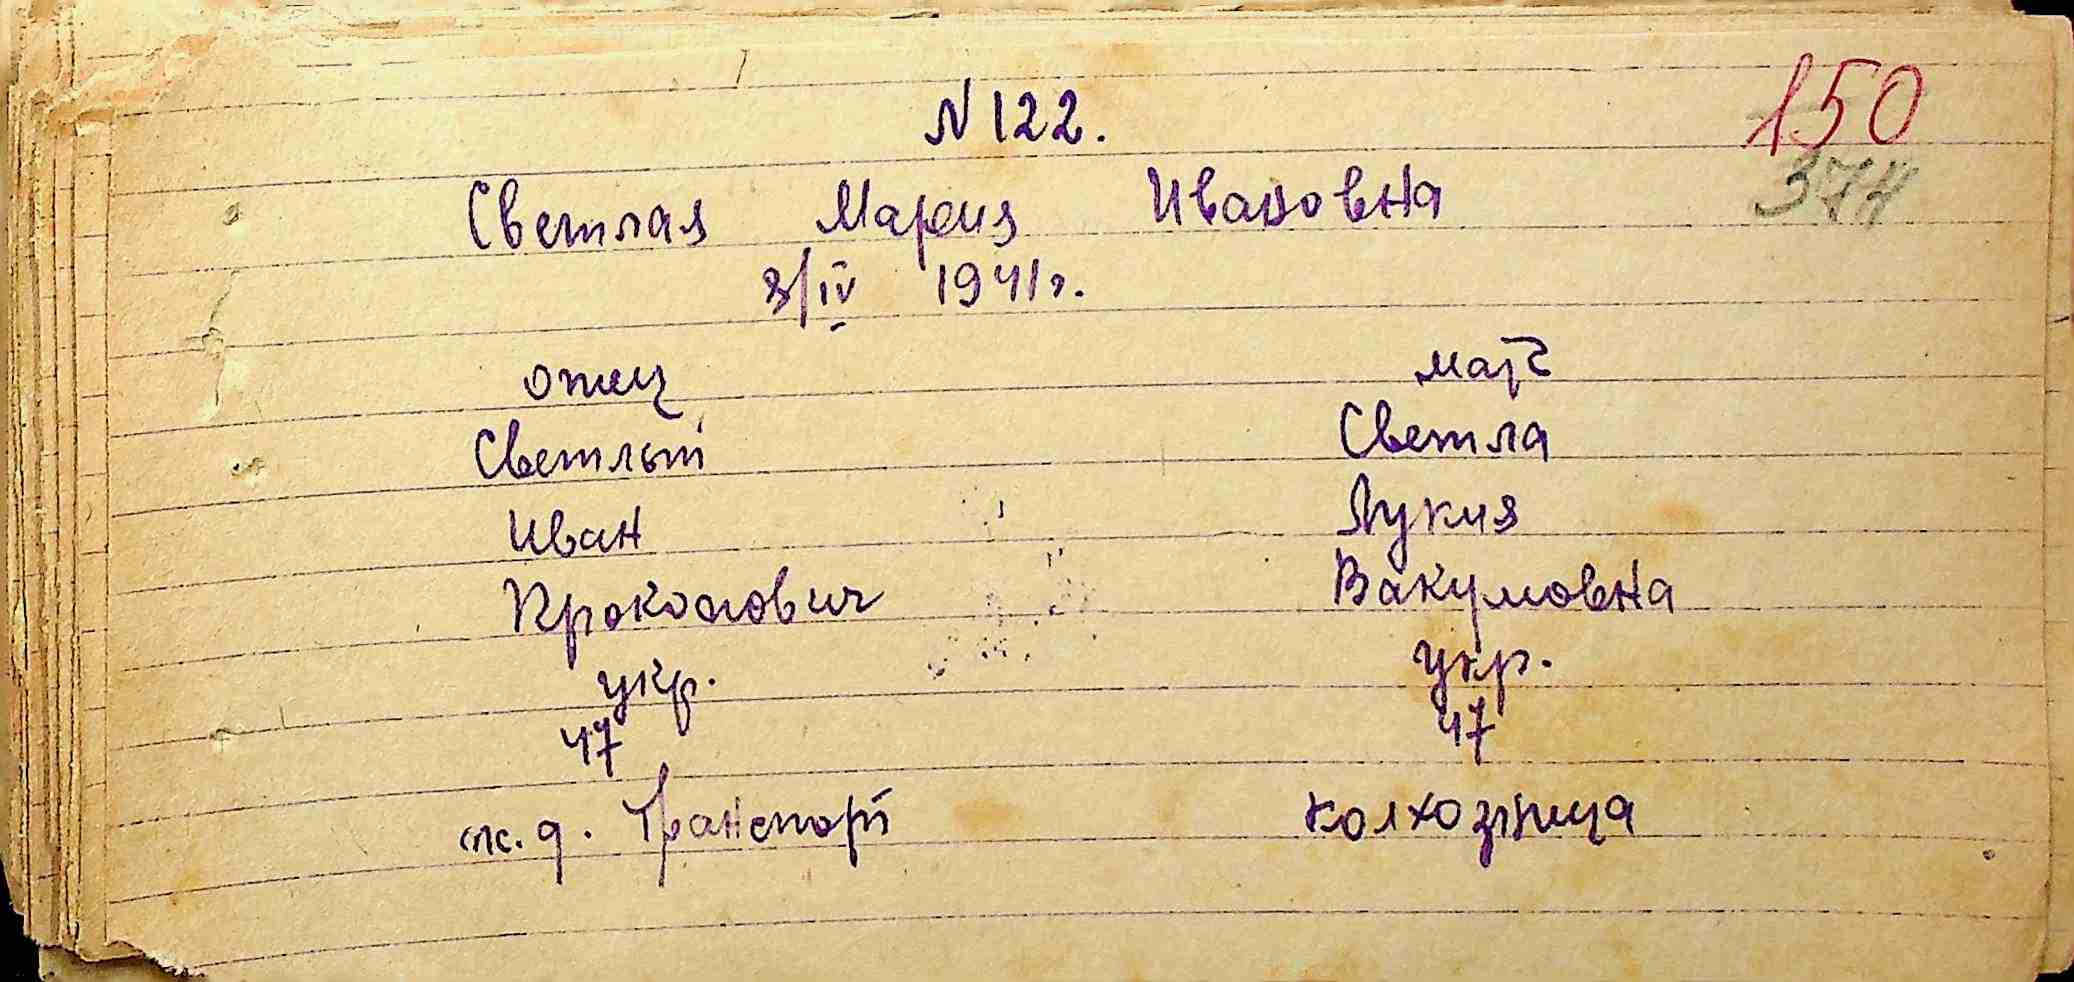 150
N 122.
374
Светлая Мария Ивановна
3/IV 1941г.
отец мать
Светлый Светла
Иван Лукия
Прокопович Вакумовна
укр. укр.
47 47
ж. д. Транспорт колхозница